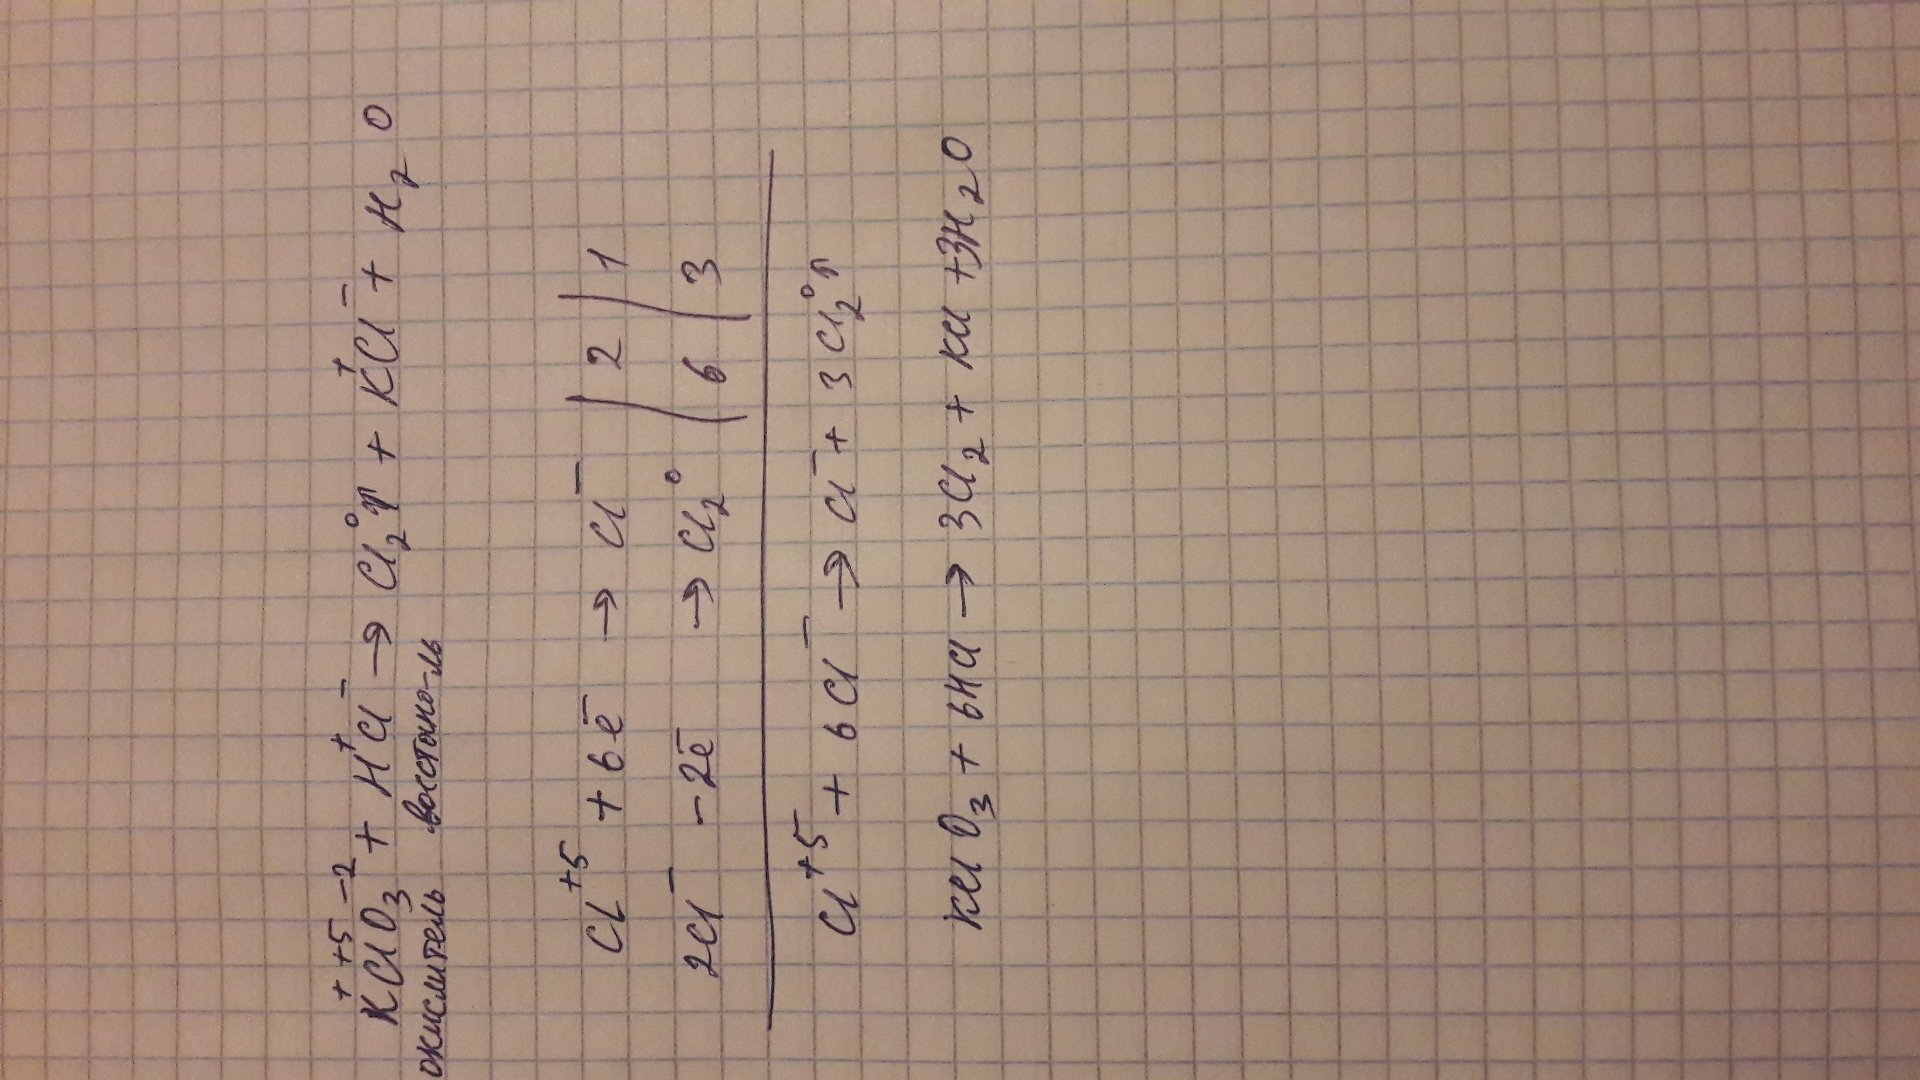 K⁺Cl⁺⁵O₃⁻² + H⁺Cl⁻ → Cl₂⁰↑ + K⁺Cl⁻ + H₂O
окислитель восстано-ль
Cl⁺⁵ + 6ē → Cl⁻ | 2 | 1
2Cl⁻ - 2ē → Cl₂⁰ | 6 | 3
Cl⁺⁵ + 6Cl⁻ → Cl⁻ + 3Cl₂⁰↑
KClO₃ + 6HCl → 3Cl₂ + KCl + 3H₂O